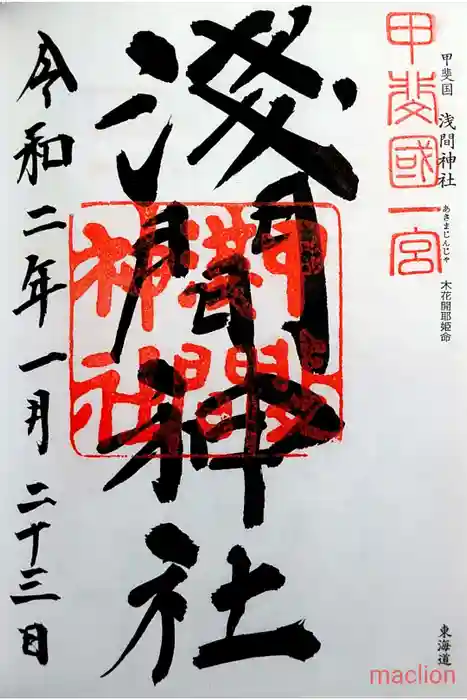 甲斐國一宮
甲斐国 浅間神社
あさまじんじゃ
木花開耶姫命
東海道
淺間神社
甲斐
淺間
神社
令和二年一月二十三日
maclion